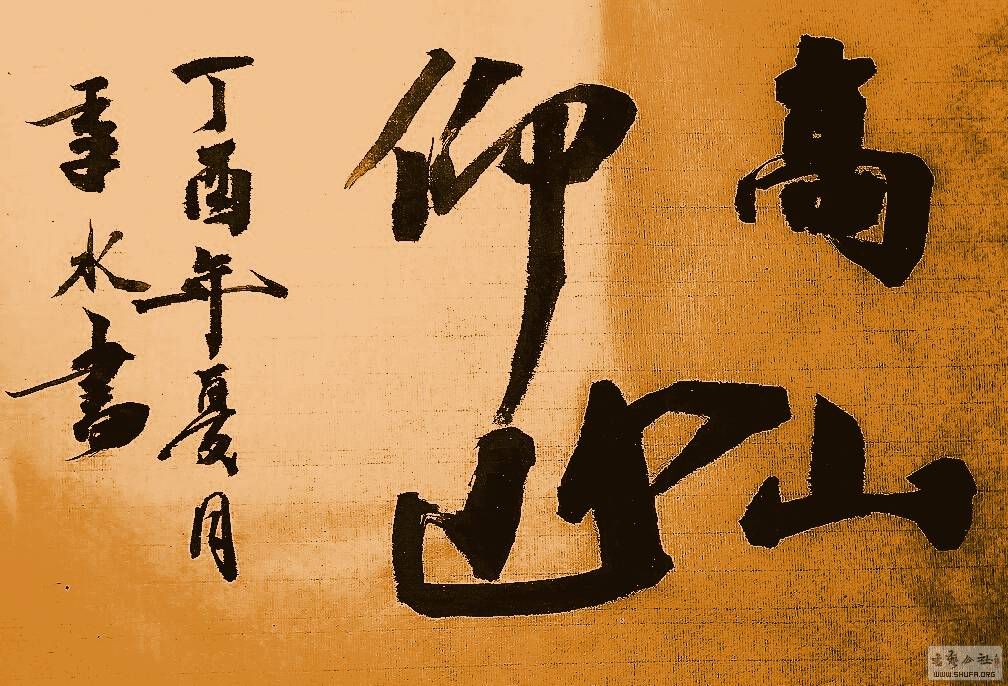 高山
仰止
丁酉年夏月
季水書
书藝公社
WWW.SHUFA.ORG